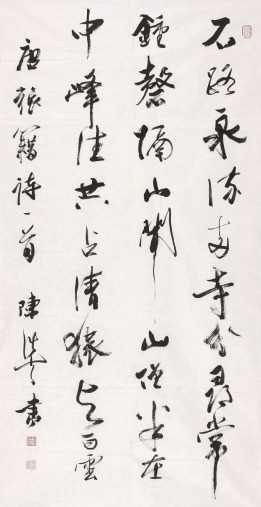 石路泉流两寺分尋常
鐘磬隔山聞山僧半在
中峰住共占清猿与白雲
唐張籍詩一首 陳 書